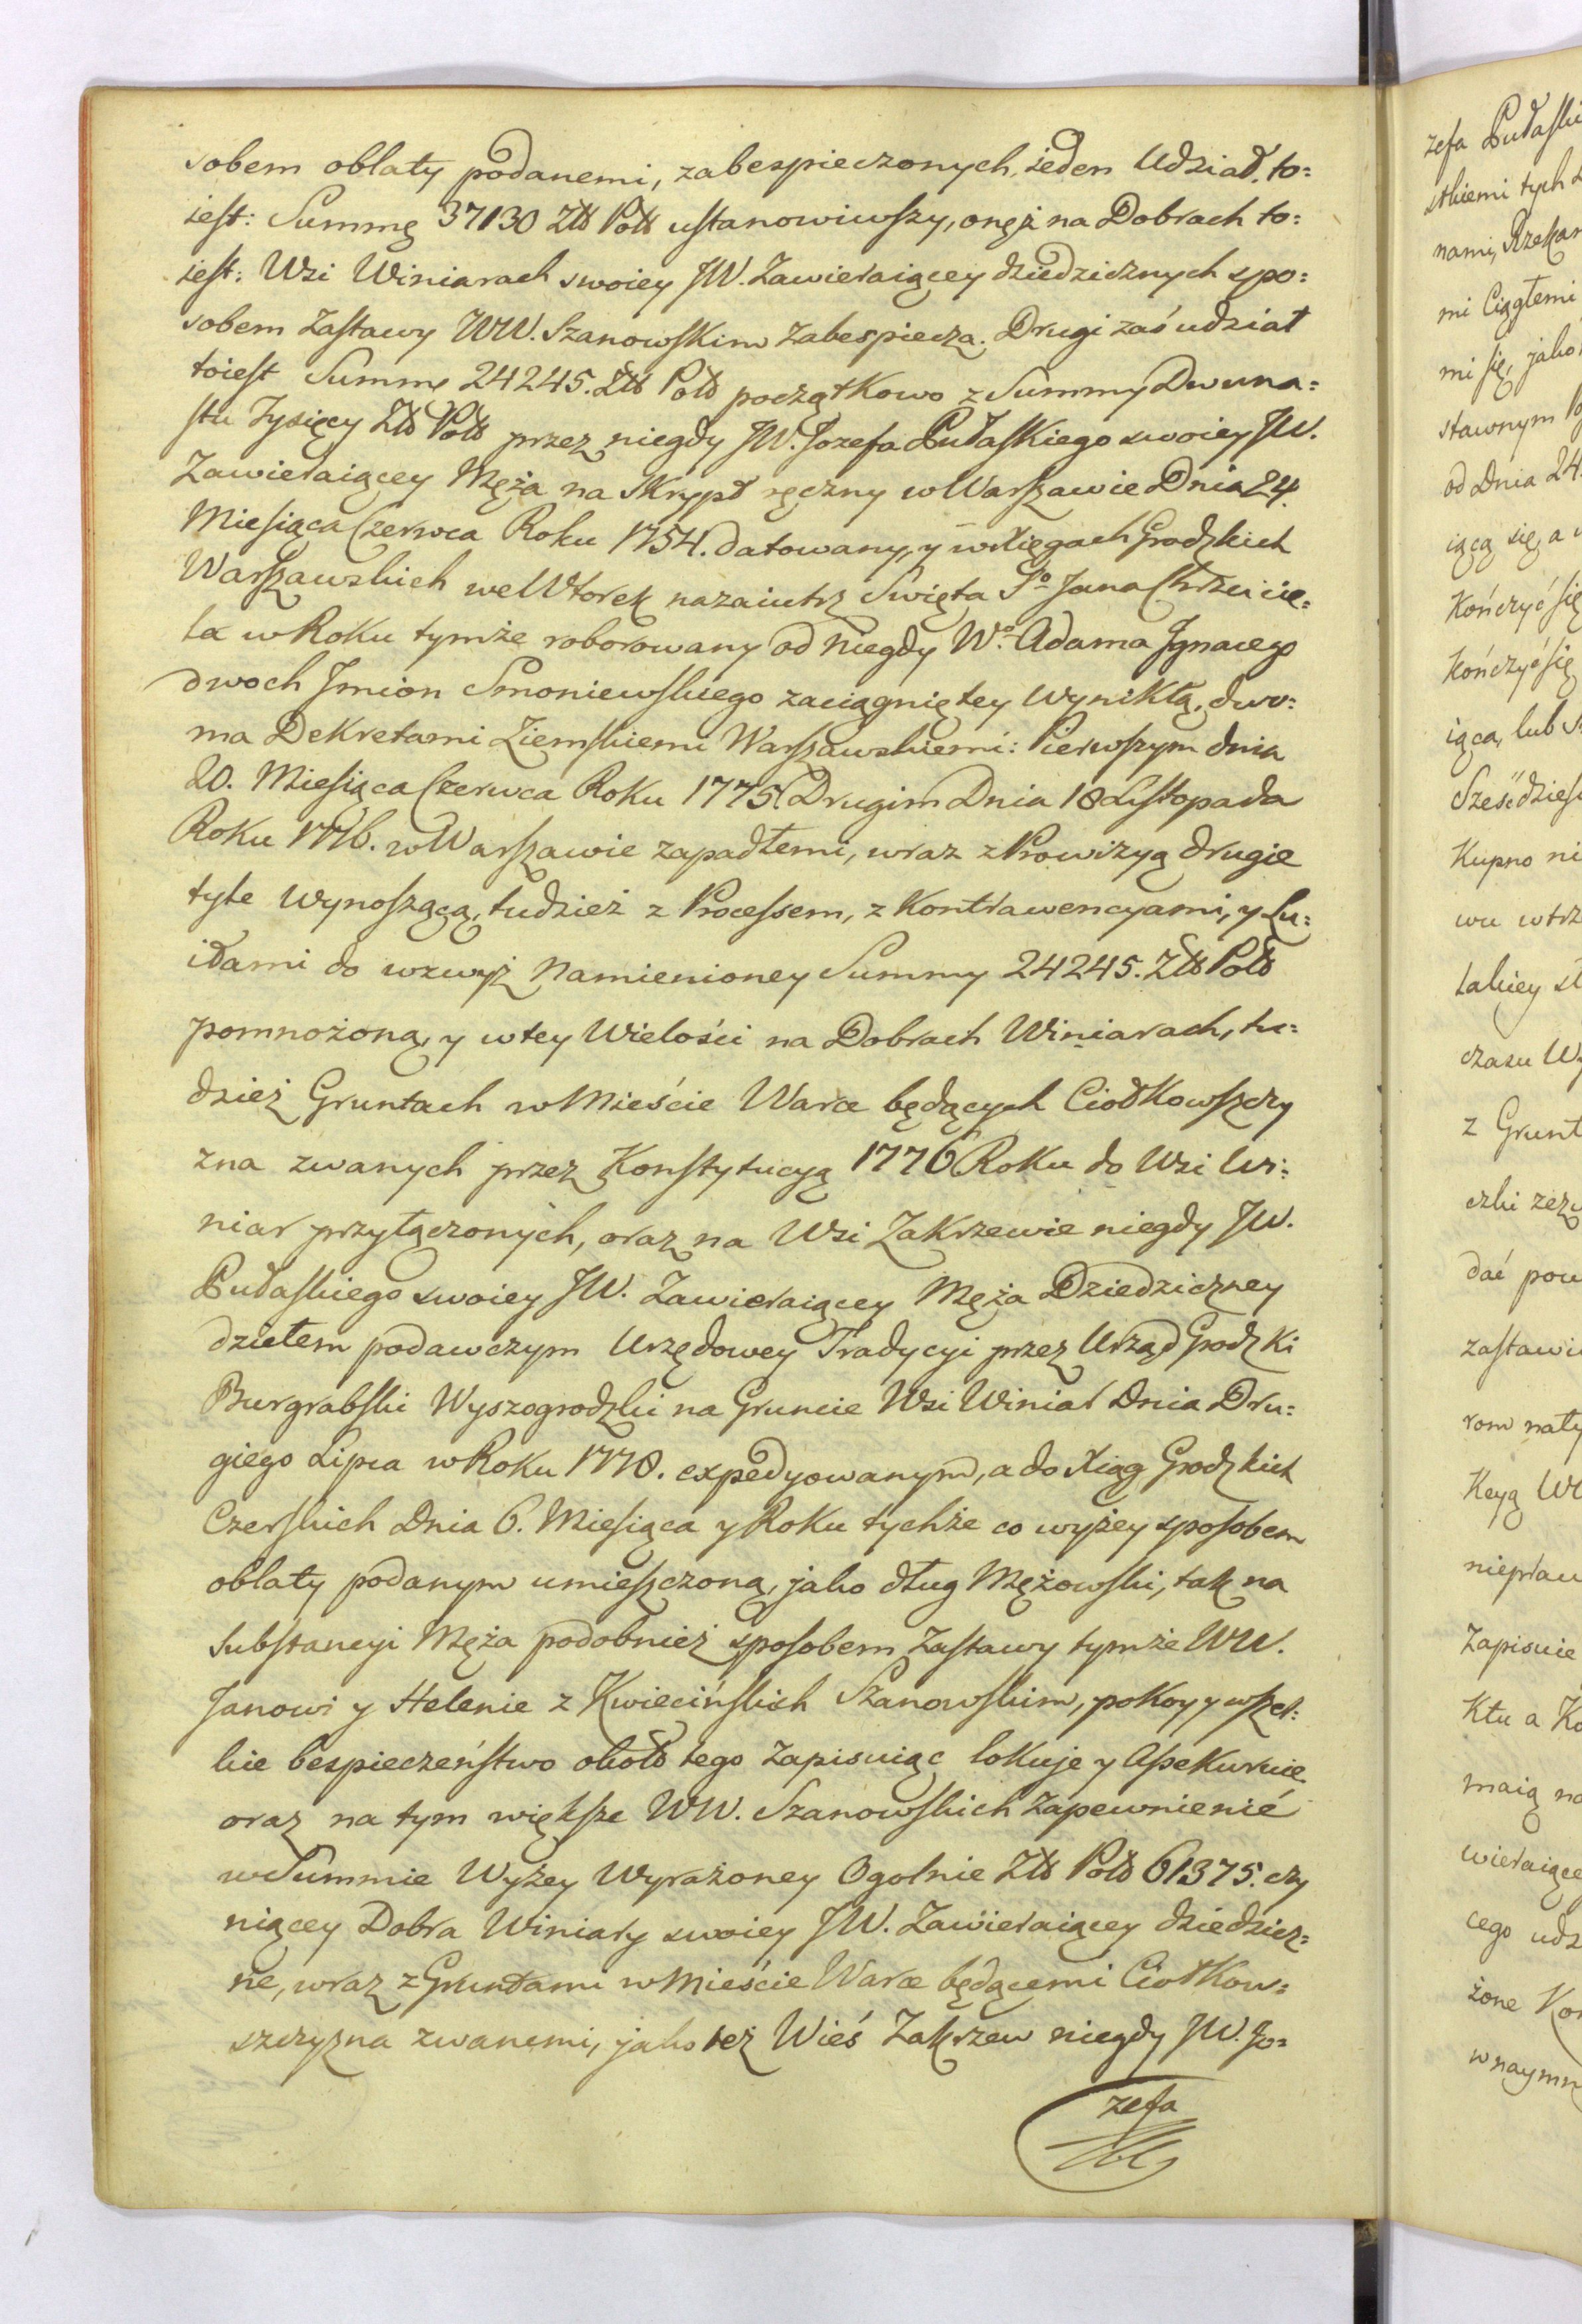 sobem oblaty podanemi, zabespieczonych, ieden Udział, to:
iest: Summę 37130 Złł Poll ustanowiwszy, onęż na Dobrach to:
iest: Wsi Winiarach swoiey JW. Zawieraiącey dziedzicznych spo:
sobem Zastawy WW. Szanowskim Zabespiecza. Drugi zaś udział
toiest Summę 24245. Złł Poll początkowo z Summy Dwuna:
stu Tysięcy Złł Poll przez niegdy JW. Jozefa Pułaskiego swoiey JW.
Zawieraiącey Męża na Skrypt ręczny w Warszawie Dnia 24.
Miesiąca Czerwca Roku 1754. datowany, y w Xięgach Grodzkich
Warszawskich we Wtorek nazaiutrz Swięta So Jana Chrzcicie:
la w Roku tymże roborowany od niegdy Wo Adama Jgnacego
dwoch Jmion Smoniewskiego zaciągniętey wynikłą, dwo:
ma Dekretami Ziemskiemi Warszawskiemi: Pierwszym dnia
20. Miesiąca Czerwca Roku 1775 Drugim Dnia 18 Listopada
Roku 1776. w Warszawie zapadłemi, wraz z Prowizyą drugie
tyle wynoszącą, tudzież z Processem, z Kontrawencyami, y Lu:
idami do wzwyż Namienioney Summy 24245. Złł Poll
pomnożoną, y wtey Wielości na Dobrach Winiarach, tu:
dzież Gruntach w Mieście Warce będących Ciołkowszczy
zna zwanych przez Konstytucyą 1776 Roku do Wsi Wi:
niar przyłączonych, oraz na Wsi Zakrzewie niegdy JW.
Pułaskiego swoiey JW. Zawieraiącey Męża Dziedziczney
dziełem podawczym Urzędowey Tradycyi przez Urząd Grodzki
Burgrabski Wyszogrodzki na Gruncie Wsi Winiar Dnia Dru:
giego Lipca w Roku 1778. expedyowanym, a do Xiąg Grodzkich
Czerskich Dnia 6. Miesiąca y Roku tychże co wyżey sposobem
oblaty podanym umieszczoną, jako dług Mężowski, tak na
Substancyi Męża podobnież sposobem Zastawy tymże WW.
Janowi y Helenie z Kwiecińskich Szanowskim, pokoy y wszel:
kie bespieczeństwo około tego Zapisuiąc lokuje y Assekuruie
oraz na tym większe WW. Szanowskich Zapewnienie
w Summie Wyżey Wyrażoney Ogolnie Złł Poll 61375. czy
niącey Dobra Winiary swoiey JW. Zawieraiącey dziedzicz:
ne, wraz z Gruntami w Mieście Warce będącemi Ciołkow:
szczyzna zwanemi, jako też Wieś Zakrzew niegdy JW. Jo:
zefa
zefa Pułaski
stkiemi tych
nami,
mi Ciągłemi
mi się, jako
stawnym
od Dnia 24.
iącą się, a
Kończyć się
kończyć się
iąca, lub
Sześćdzies
Kupno ni
wu wtrz
takiey
czasu
z Grunt
czki
dać pow
zastawi
rom naty
Keyą
niepraw
Zapisuie
Ktu a Ko
maią na
wieraiące
cego udz
żone Kon
wnaymn